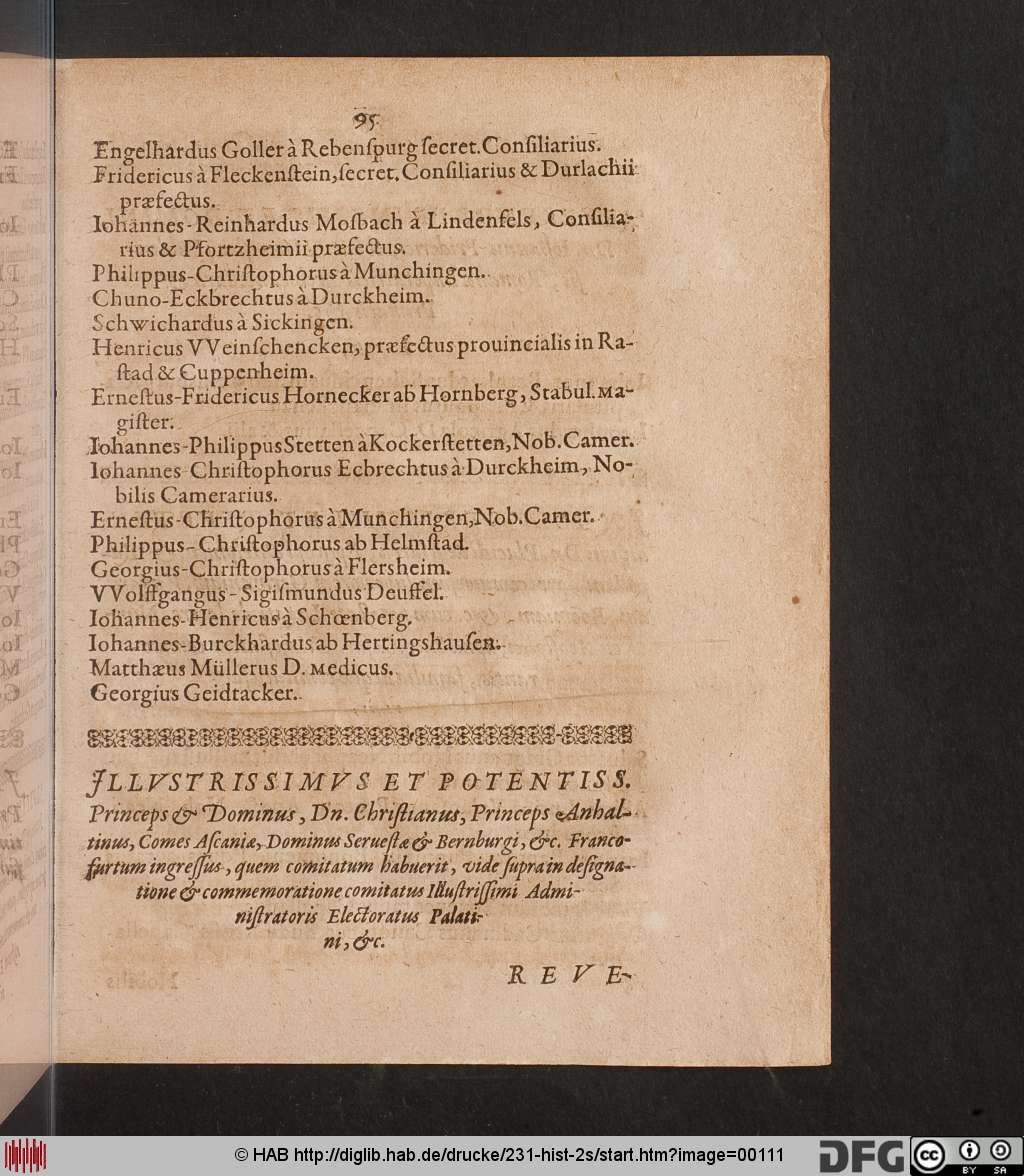 95
Engelhardus Goller à Rebenſpurg ſecret. Conſiliarius.
Fridericus à Fleckenſtein, ſecret. Conſiliarius & Durlachii
præfectus.
Iohannes-Reinhardus Moſbach à Lindenfels, Conſilia-
rius & Pfortzheimii præfectus.
Philippus-Chriſtophorus à Munchingen.
Chuno-Eckbrechtus à Durckheim.
Schwichardus à Sickingen.
Henricus VVeinſchencken, præfectus prouincialis in Ra-
ſtad & Cuppenheim.
Erneſtus-Fridericus Hornecker ab Hornberg, Stabul. Ma-
giſter.
Iohannes-Philippus Stetten à Kockerſtetten, Nob. Camer.
Iohannes-Chriſtophorus Ecbrechtus à Durckheim, No-
bilis Camerarius.
Erneſtus-Chriſtophorus à Munchingen, Nob. Camer.
Philippus-Chriſtophorus ab Helmſtad.
Georgius-Chriſtophorus à Flersheim.
VVolffgangus-Sigiſmundus Deuffel.
Iohannes-Henricus à Schœnberg.
Iohannes-Burckhardus ab Hertingshauſen.
Matthæus Müllerus D. Medicus.
Georgius Geidtacker.
ILLVSTRISSIMVS ET POTENTISS.
Princeps & Dominus, Dn. Chriſtianus, Princeps Anhal-
tinus, Comes Aſcaniæ, Dominus Serueſtæ & Bernburgi, &c. Franco-
furtum ingreſſus, quem comitatum habuerit, vide ſupra in deſigna-
tione & commemoratione comitatus Illuſtriſſimi Admi-
niſtratoris Electoratus Palati-
ni, &c.
REVE-
© HAB http://diglib.hab.de/drucke/231-hist-2s/start.htm?image=00111
DFG
cc
BY SA